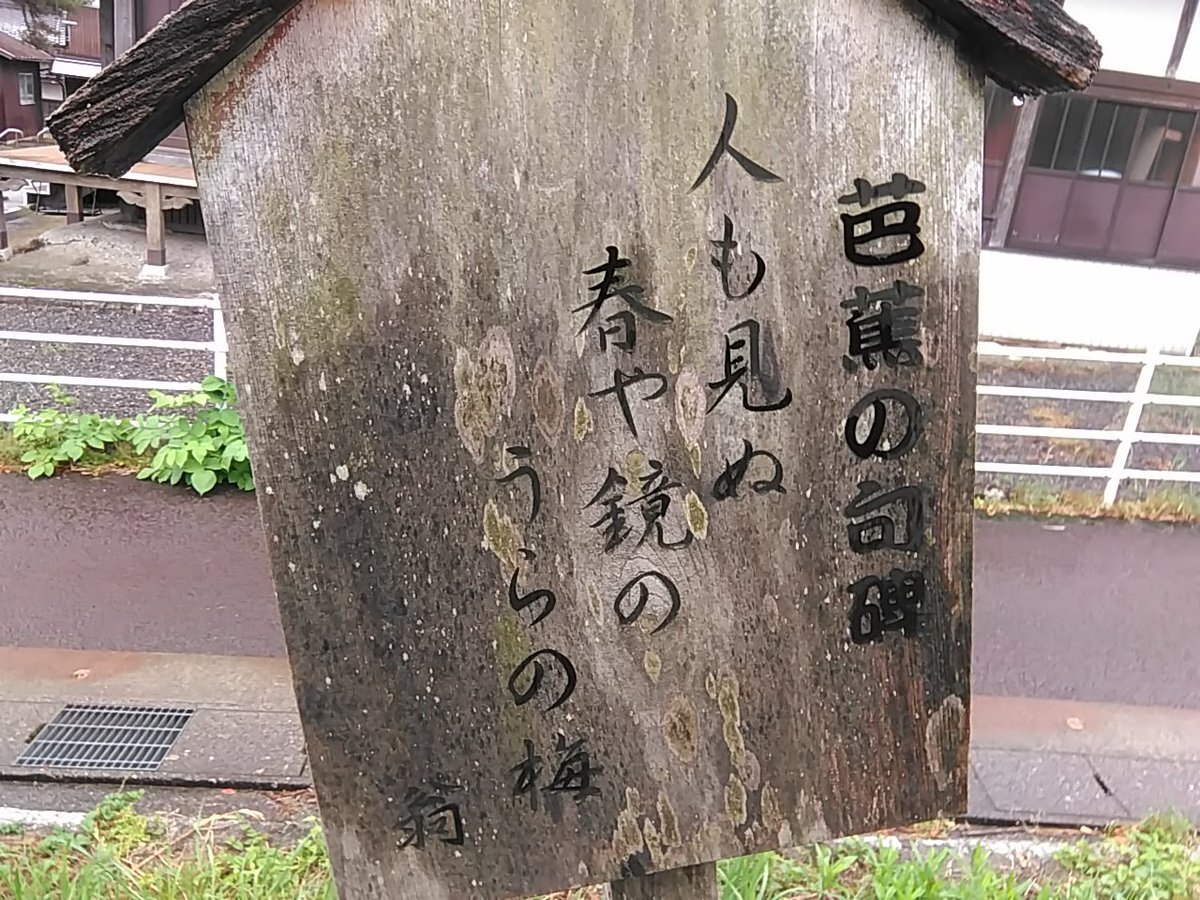 芭蕉の句碑
人も見ぬ
春や鏡の
うらの梅
翁